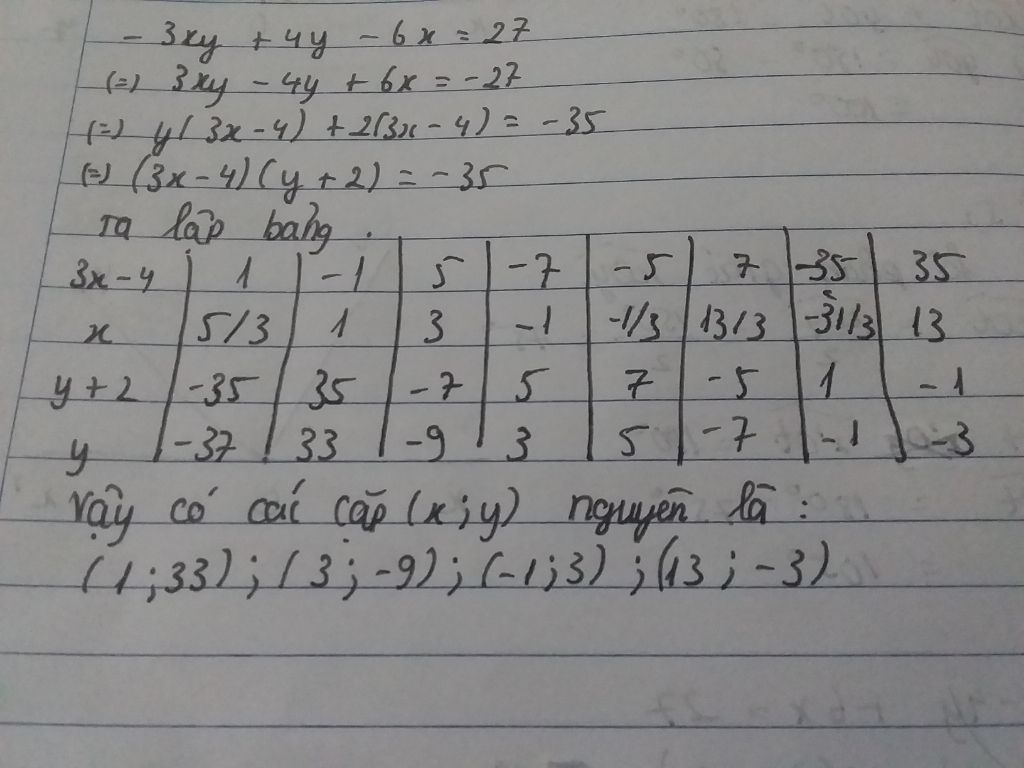 - 3xy + 4y - 6x = 27
(=) 3xy - 4y + 6x = -27
(=) y(3x-4) + 2(3x-4) = -35
(=) (3x-4)(y+2) = -35
Ta lập bảng.
3x-4 | 1 | -1 | 5 | -7 | -5 | 7 | -35 | 35
x | 5/3 | 1 | 3 | -1 | -1/3 | 13/3 | -31/3 | 13
y+2 | -35 | 35 | -7 | 5 | 7 | -5 | 1 | -1
y | -37 | 33 | -9 | 3 | 5 | -7 | -1 | -3
Vậy có các cặp (x;y) nguyên là:
(1;33); (3;-9); (-1;3); (13;-3)